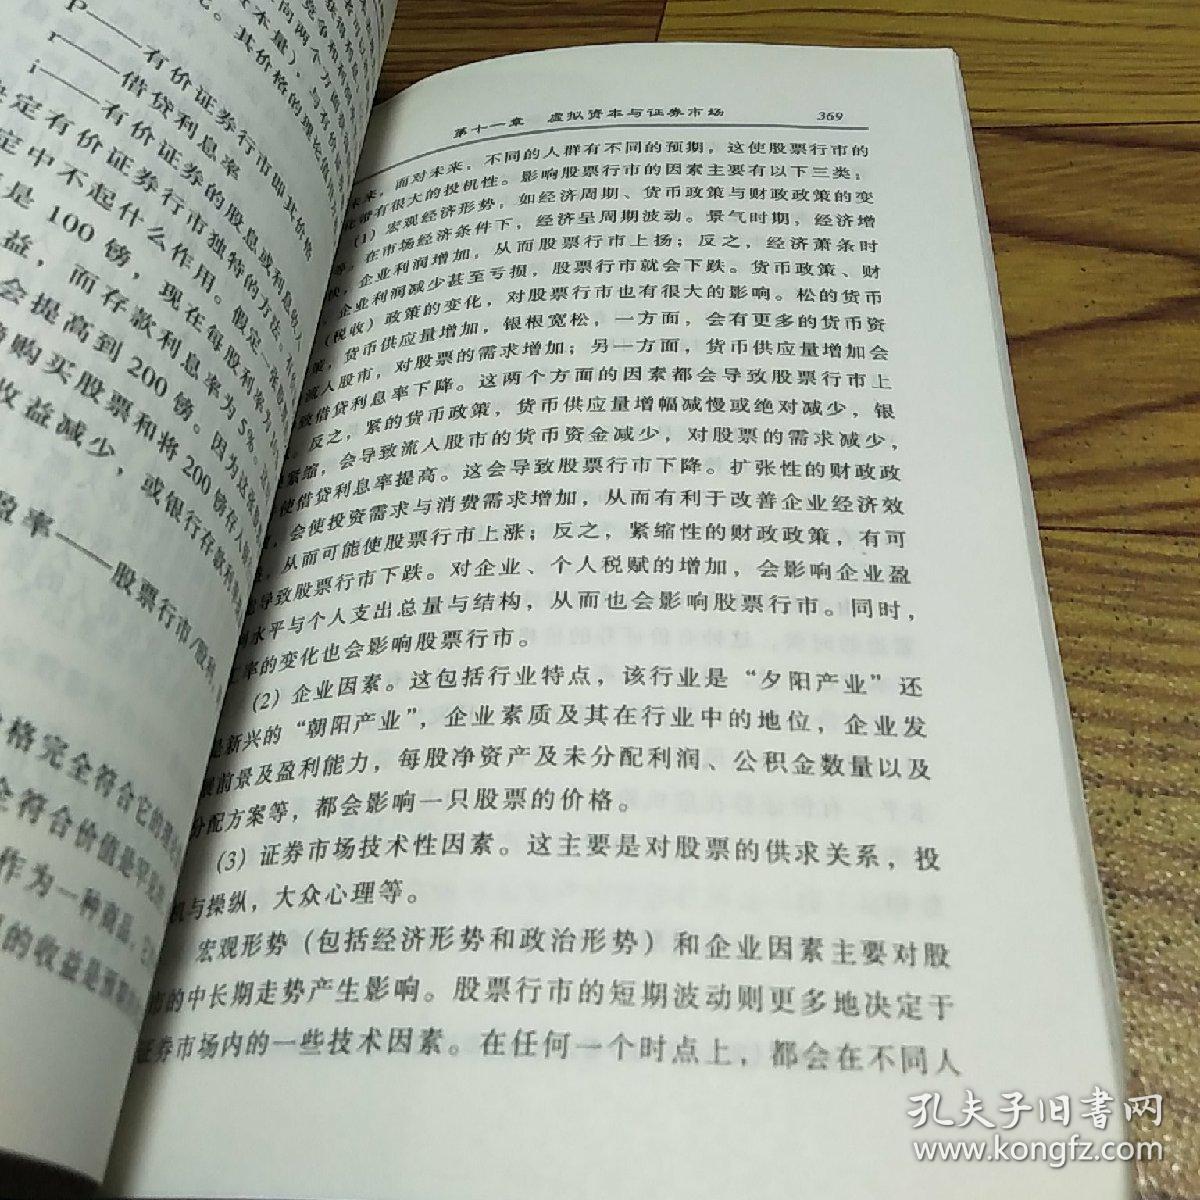 P——有价证券行市即其价格
r——借贷利息率
i——有价证券的股息或利息收入
决定有价证券行市独特的方法。
定中不起什么作用。假定一张
是100磅,现在每股利率为
益,而存款利息率为5%。
会提高到200磅。因为这张
购买股票和将200磅存入银
收益减少,或银行存款利
盈率——股票行市/股利
价格完全符合它的理论
全符合价值是罕见
作为一种商品,它
的收益是预
第十一章 虚拟资本与证券市场 369
未来,面对未来,不同的人群有不同的预期,这使股票行市的
带有很大的投机性。影响股票行市的因素主要有以下三类:
(1)宏观经济形势,如经济周期、货币政策与财政政策的变
等。在市场经济条件下,经济呈周期波动。景气时期,经济增
快,企业利润增加,从而股票行市上扬;反之,经济萧条时
,企业利润减少甚至亏损,股票行市就会下跌。货币政策、财
(税收)政策的变化,对股票行市也有很大的影响。松的货币
策,货币供应量增加,银根宽松,一方面,会有更多的货币资
流入股市,对股票的需求增加;另一方面,货币供应量增加会
致借贷利息率下降。这两个方面的因素都会导致股票行市上
。反之,紧的货币政策,货币供应量增幅减慢或绝对减少,银
紧缩,会导致流入股市的货币资金减少,对股票的需求减少,
使借贷利息率提高。这会导致股票行市下降。扩张性的财政政
,会使投资需求与消费需求增加,从而有利于改善企业经济效
,从而可能使股票行市上涨;反之,紧缩性的财政政策,有可
能导致股票行市下跌。对企业、个人税赋的增加,会影响企业盈
利水平与个人支出总量与结构,从而也会影响股票行市。同时,
汇率的变化也会影响股票行市。
(2)企业因素。这包括行业特点,该行业是“夕阳产业”还
是新兴的“朝阳产业”,企业素质及其在行业中的地位,企业发
展前景及盈利能力,每股净资产及未分配利润、公积金数量以及
分配方案等,都会影响一只股票的价格。
(3)证券市场技术性因素。这主要是对股票的供求关系,投
机与操纵,大众心理等。
宏观形势(包括经济形势和政治形势)和企业因素主要对股
市的中长期走势产生影响。股票行市的短期波动则更多地决定于
证券市场内的一些技术因素。在任何一个时点上,都会在不同人
孔夫子旧书网
www.kongfz.com